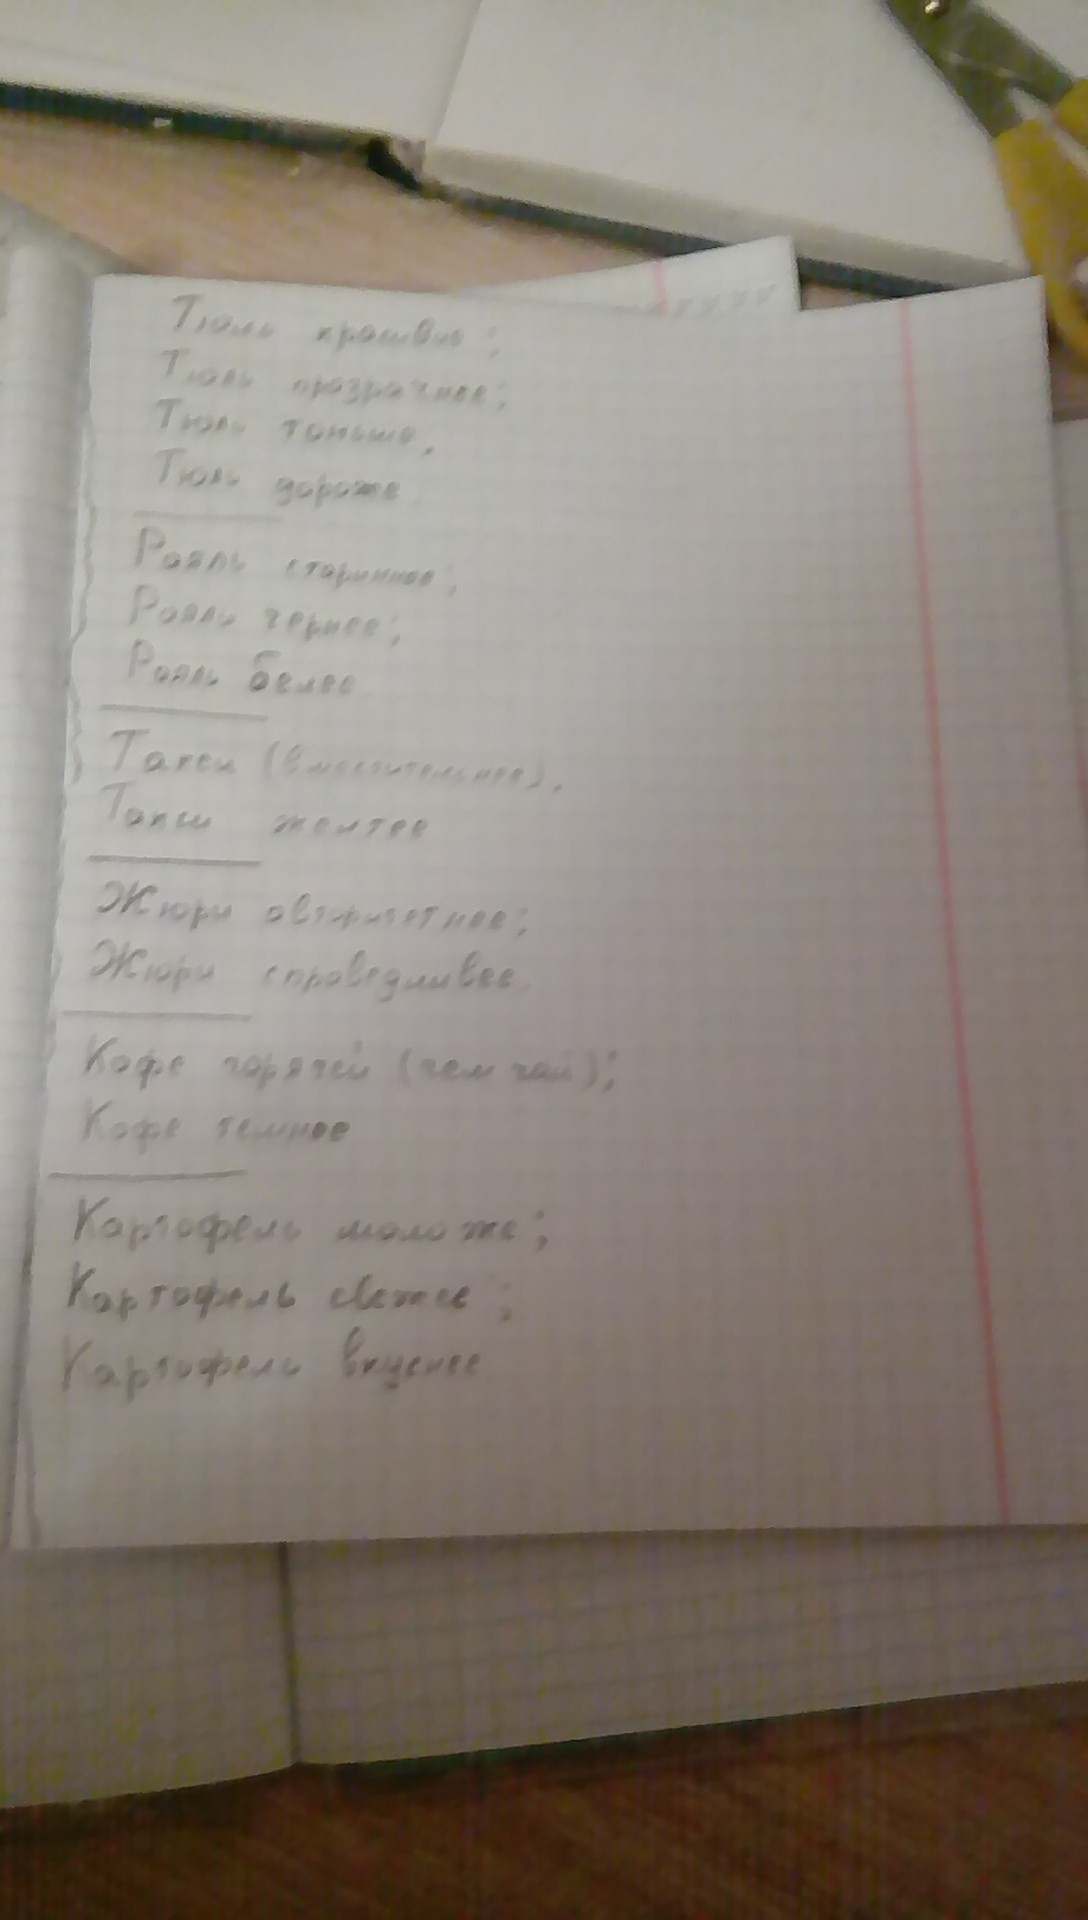 Тюль красивее;
Тюль прозрачнее;
Тюль тоньше,
Тюль дороже.
Рояль стариннее;
Рояль чернее;
Рояль белее
Такси (вместительнее),
Такси желтее
Жюри авторитетнее;
Жюри справедливее.
Кофе горячей (чем чай);
Кофе темнее
Картофель моложе;
Картофель свежее;
Картофель вкуснее